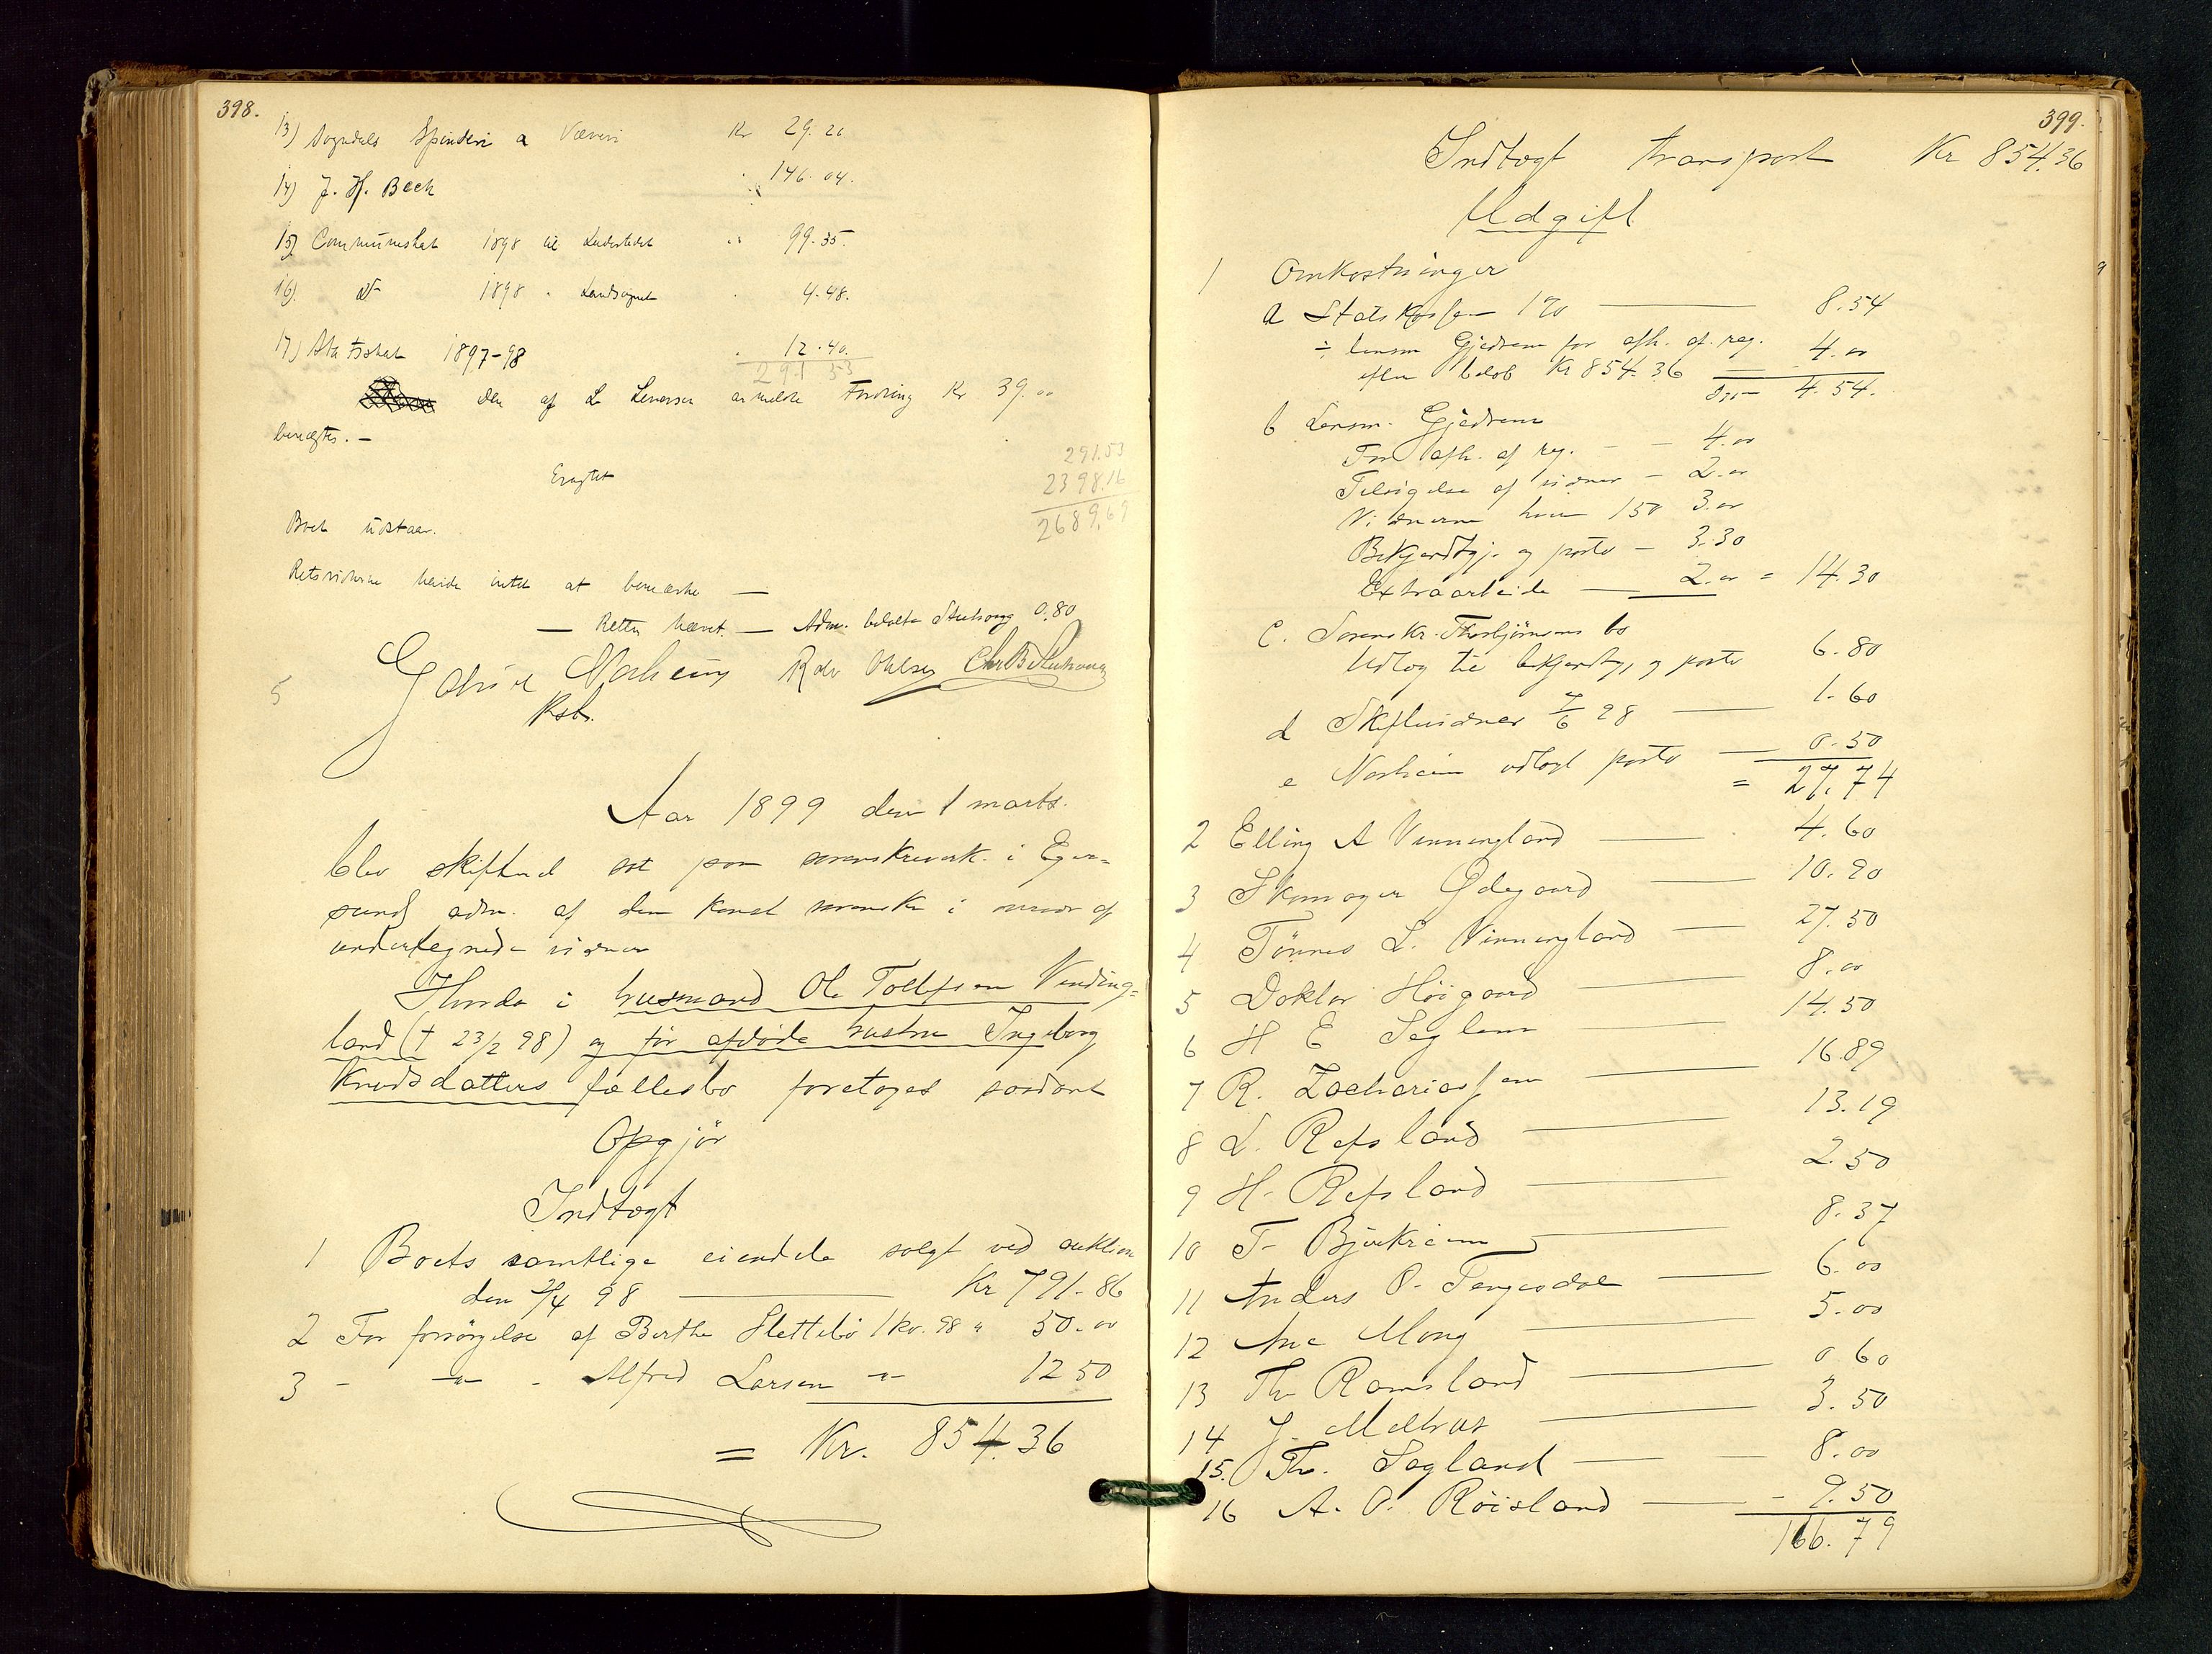 398.
13) Sogndals Spinderi & Væveri Kr 29.20
14) J. H. Beck " 146.04.
15) Communeskat 1898 til Ladestedet " 99.35.
16) do 1898 " Landsognet " 4.48.
17) Statsskat 1897-98 " 12.40.
291 53
den af L. Leversen anmeldte Fordring Kr 39.00
benegtes. —
291.53
Eragtet
2398.16
2689.69
Boet udstaar.
Retsvidnerne havde intet at bemærke —
— Retten hævet. — Adm. betalte Stuhoug 0.80
5
Norheim Rdv Ohlsen Chr B Stuhoug
Ksb.
Aar 1899 den 1 marts.
blev skifteret sat paa sorenskriverk. i Eger=
sund adm. af den konst sorenskr i nærvær af
undertegnede vidner
Hvorda i husmand Ole Tollefsen Vinding=
land († 23/2 98) og før afdøde hustru Ingeborg
Knudsdatters fællesbo foretoges saadant
Opgjør
Indtægt
1 Boets samtlige eiendele solgt ved auktion
den /4 98 —— Kr 791.86
2 For forsørgelse af Berthe Slettebø 1 kv. 98 " 50.00
3 - -"- - Alfred Larsen -"- 12 50
= Kr. 854.36
399.
Indtægt transport Kr 854.36
Udgift
1 Omkostninger
a Statskassen 1% —— 8.54
÷ lensm Gjedrem for afh. af reg. 4.00
efter beløb Kr 854.36 —— 4.54.
b Lensm. Gjedrem
For afh. af reg. - - 4.00
Tilsigelse af vidner - 2.00
Vidnerne hver 150 3.00
Bekjendtgj. og porto - 3.30
Extraarbeide —— 2.00 = 14.30
c. Sorenskr. Thorbjørnsens bo
Udlæg til bekjendtgj. og porto 6.80
d Skiftevidner 7/6 98 —— 1.60
e Norheim udlagt porto —— 0.50
= 27.74
2 Elling A Vinningland —— 4.60
3 Skomager Ødegaard —— 10.90
4 Tønnes L. Vinningland — 27.50
5 Doktor Höigaard —— 8.00
6 H E Seglem —— 14.50
7 R. Zachariassen —— 16.89
8 L. Refsland —— 13.19
9 H. Refsland —— 2.50
10 T. Bjerkreim —— 8.37
11 Anders O. Tengesdal —— 6.00
12 Ane Mong —— 5.00
13 Th Ramsland —— 0.60
14 J. —— 3.50
15. Th. Sagland — — 8.00
16 A. O. Röisland —— 9.50
166.79